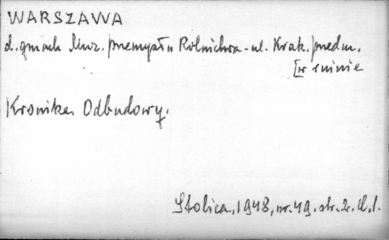 WARSZAWA
d. gmach Muz. przemysłu i Rolnictwa - ul. Krak. przedm.
[w ruinie
Kronika Odbudowy.
Stolica, 1948, nr. 49. str. 2. il. 1.